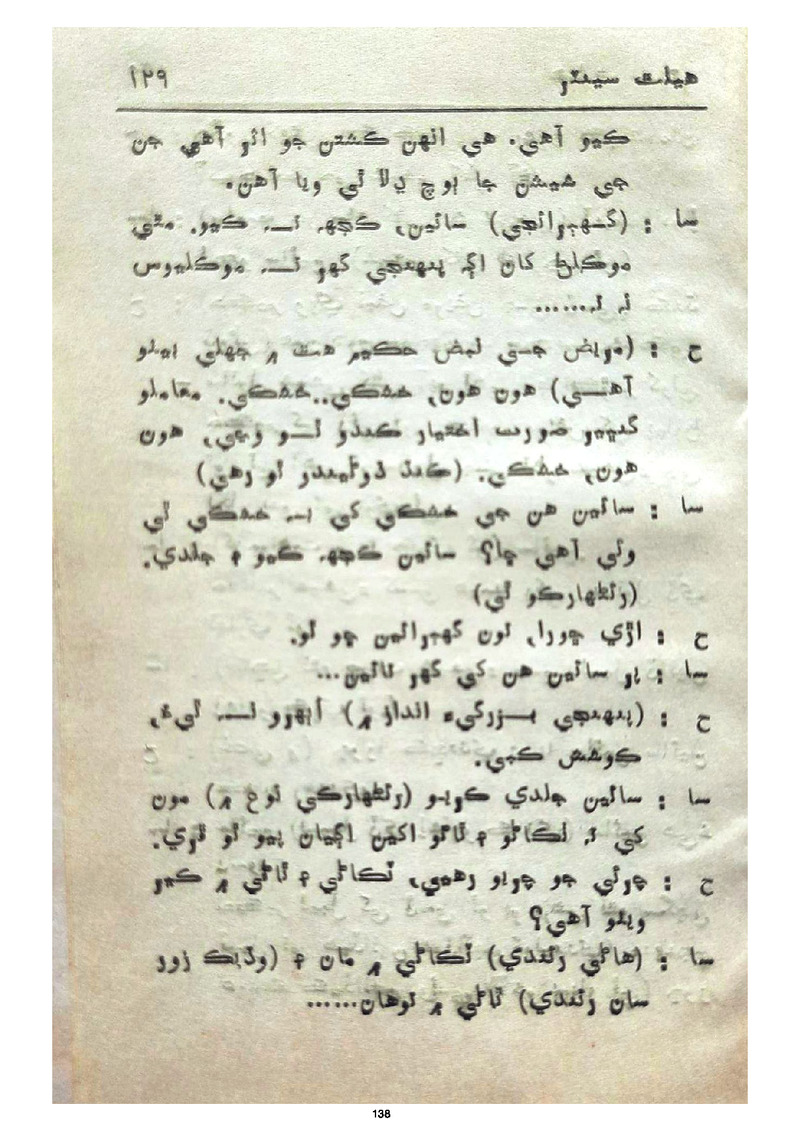 هيانت سينڌو ١٢٩
ڪيو آهي. هي انهن ڪشتن جو اثر آهي جن
جي شيشن جا ٻوچ ڍلا ٿي ويا آهن.
سا : (گهٻرائجي) سائين، ڪجهه نه ڪيو. مٽي
موڪلڻ کان اڳ پنهنجي گهر نه موڪليوس
ته ته......
ح : (مريض جي نبض حڪيم هٿ ۾ جهلي بيٺو
آهي) هون هون، خشڪي..خشڪي. معاملو
گنڀير صورت اختيار ڪندو ٿو وڃي، هون
هون، خشڪي. (ڪنڌ ڌوڻيندو ٿو رهي)
سا : سائين هن جي خشڪي کي به خشڪي ٿي
وئي آهي ڇا؟ سائين ڪجهه ڪيو ۽ جلدي.
(رئڻهارڪو ٿي)
ح : اڙي ڇورا، تون گهٻرائين ڇو ٿو.
سا : پر سائين هن کي گهر نائين...
ح : (پنهنجي بزرگيءَ انداز ۾) اُٻهرو نه ٿيءُ،
ڪوشش ڪجي.
سا : سائين جلدي ڪريو (رئڻهارڪي نوع ۾) مون
کي ته ٽڪاڻو ۽ ٿاڻو اکين اڳيان پيو ٿو ڦري.
ح : چرئي جو چريو رهين، ٽڪاڻي ۽ ٿاڻي ۾ ڪير
ويٺو آهي؟
سا : (هاڻي رئندي) ٽڪاڻي ۾ مان ۽ (وڌيڪ زور
سان رئندي) ٿاڻي ۾ توهان......
138